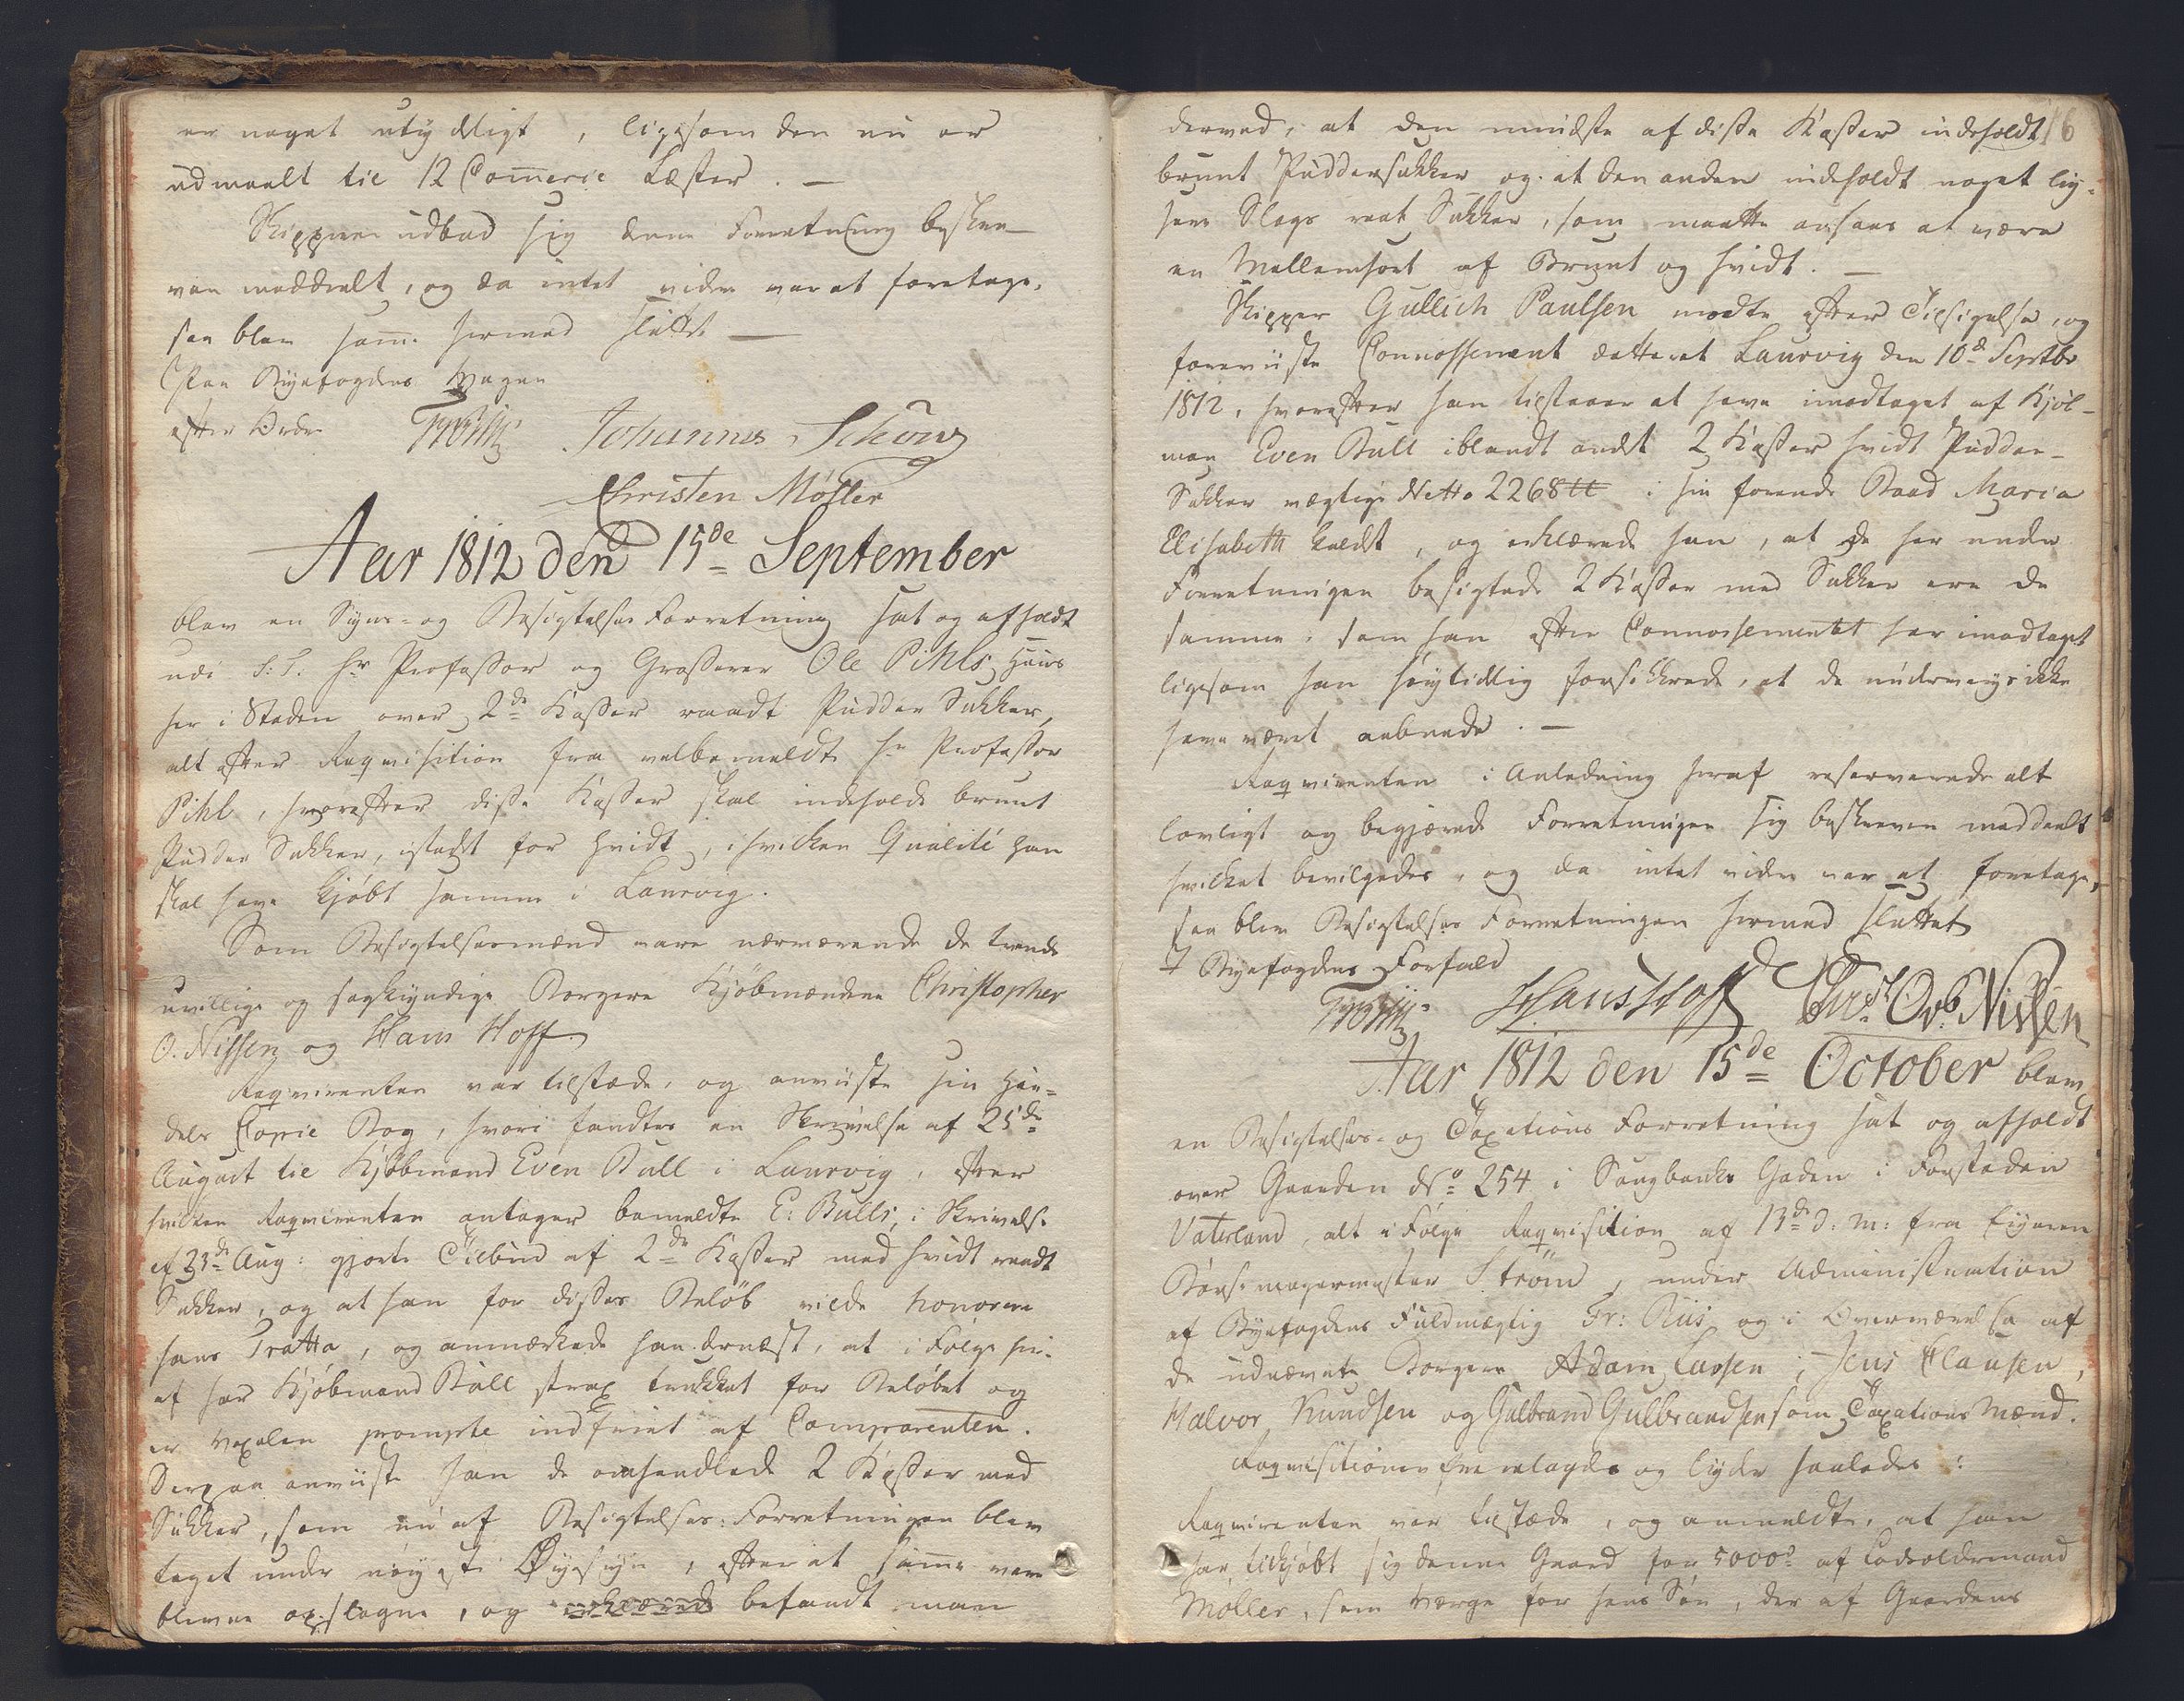 er noget utydeligt, ligesom den nu er
udmaalt til 12 Com̅erce Læster. —
Skipperen udbad sig denne Forretning beskre-
ven meddeelt, og da intet videre var at foretage,
saa blev sam̅e hermed sluttet —
Paa Byefogdens Vegne
efter Ordre Johannes Schow
Christen Møller
Aar 1812 den 15de September
blev en Syns- og Besigtelses Forretning sat og afholdt
udi S: T. Hr Professor og Grosserer Ole Pihls Huus
her i Staden over 2de Kasser raadt Pudder Sukker,
alt efter Reqvisition fra velbemeldte Hr Professor
Pihl, hvorefter disse Kasser skal indeholde bruunt
Pudder Sukker, istedet for hvidt, i hvilken Qualité han
skal have kjøbt samme i Laurvig.
Som Besigtelsesmænd vare nærværende de tvende
uvillige og sagkyndige Borgere Kjøbmændene Christopher
O. Nissen og Hans Hoff.
Reqvirenten var tilstæde, og anviiste sin Han-
dels Copie Bog, hvori fandtes en Skrivelse af 25de
August til Kjøbmand Even Bull i Laurvig, efter
hvilken Reqvirenten antager bemeldte E: Bulls, i Skrivelse
af 23de Aug: gjorte Tilbud af 2de Kasser med hvidt raadt
Sukker, og at han for disses Beløb vilde honorere
hans Tratta, og anmærkede han dernæst, at i Følge her-
af har Kjøbmand Bull strax trukket for Beløbet og
er Vexelen prompte indfriet af Comparenten.
Derpaa anviiste han de omhandlede 2 Kasser med
Sukker, som nu af Besigtelses-Forretningen blev
taget under nøyeste Øyesyn, efterat sam̅e vare
blevne opslagne, og erklærede befandt man
derved, at den mindste af disse Kasser indeholdt 16
bruunt Puddersukker og at den anden indeholdt noget lig-
hen Slags raat Sukker, som maatte ansees at være
en Mellemsort af Bruunt og hvidt. —
Skipper Gullich Paulsen mødte efter Tilsigelse, og
foreviiste Connossement datteret Laurvig den 10d Septbr
1812, hvorefter han tilstaaer at have imodtaget af Kjøb-
man Even Bull iblandt andet 2 Kasser hvidt Pudder-
Sukker vægtige Netto 2268 ℔ i sin førende Baad Maria
Elisabeth kaldet, og erklærede han, at de her under
Forretningen besigtede 2 Kasser med Sukker ere de
samme, som han efter Connossementet har imodtaget
ligesom han høytidlig forsikkrede, at de underveys ikke
have været aabnede. —
Reqvirenten i Anledning heraf reserverede alt
lovligt og begjærede Forretningen sig beskreven meddeelt
hvilket bevilgedes, og da intet videre var at foretage,
saa blev Besigtelses Forretningen hermed sluttet
I Byefogdens Forfald
Hans Hoff Chr. Ovb Nissen
Aar 1812 den 15de October blev
en Besigtelses- og Taxations Forretning sat og afholdt
over Gaarden No 254 i Saugbanks Gaden i Forstaden
Vaterland, alt i Følge Reqvisition af 13de d: M: fra Eyeren
magermester Strøm, under Administration
af Byefogdens Fuldmægtig Fr: Riis og i Overværelse af
de udnævnte Borgere Adam Larsen, Jens Clausen,
Halvor Knudsen og Gulbrand Gulbrandsen som Taxations Mænd.
Reqvisitionen fremlagdes og lyder saaledes:
Reqvirenten var tilstæde, og anmeldte, at han
har tilkjøbt sig denne Gaard for 5000 af
Møller, som Værge for hans Søn, der af Gaardens